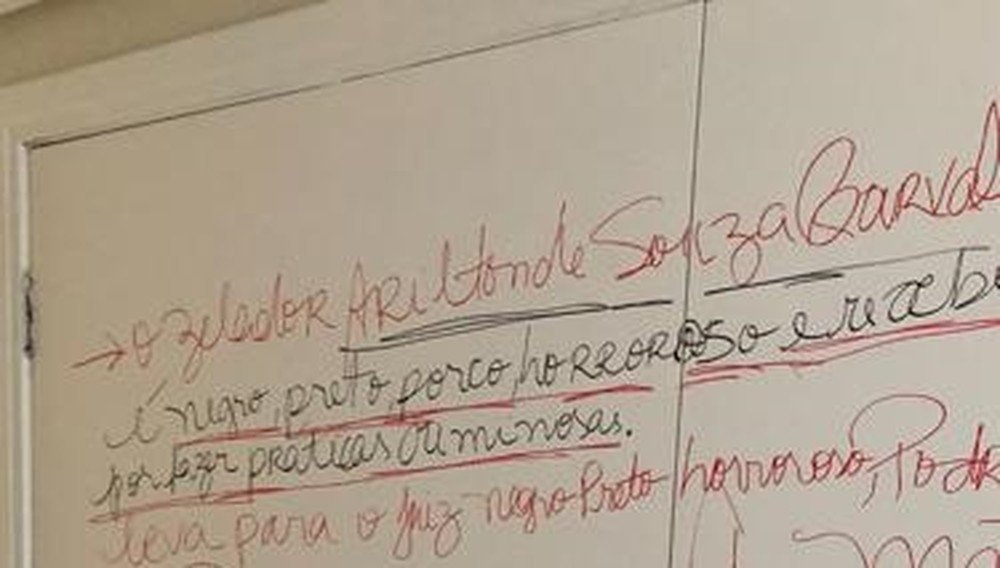 → O zelador Arilton de Souza Carval
é negro, preto, porco, horroroso e receb
por fazer praticas criminosas.
leva para o juiz negro Preto horroroso, Pode